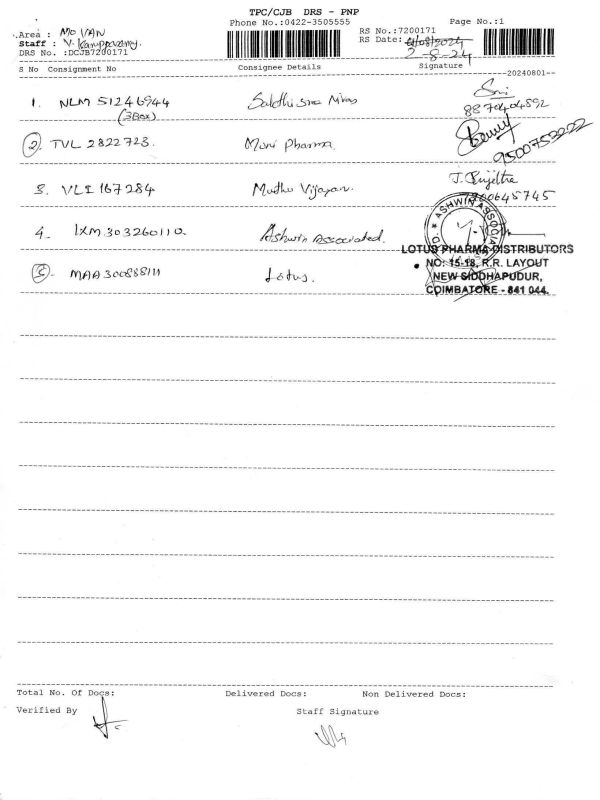 TPC/CJB DRS - PNP
Phone No.:0422-3505555
Page No.:1
Area : MO VAN
RS No.:7200171
Staff : V. Karuppasamy.
RS Date:
2-8-24
DRS No. :DCJB7200171
S No Consignment No Consignee Details Signature
--20240801--
1. NLM 51246944
(3Box)
Sri
8870404592
2. TVL 2822723. Mani Pharma.
9500753222
3. VLI 167284 Muthu Vijayan.
4. IXM 303260110. Ashwin Associated.
ASHWIN ASSOCIATED
LOTUS PHARMA DISTRIBUTORS
NO: 15-18, R.R. LAYOUT
5. MAA 300888111 Lotus.
NEW SIDDHAPUDUR,
COIMBATORE - 641 044.
Total No. Of Docs: Delivered Docs: Non Delivered Docs:
Verified By Staff Signature